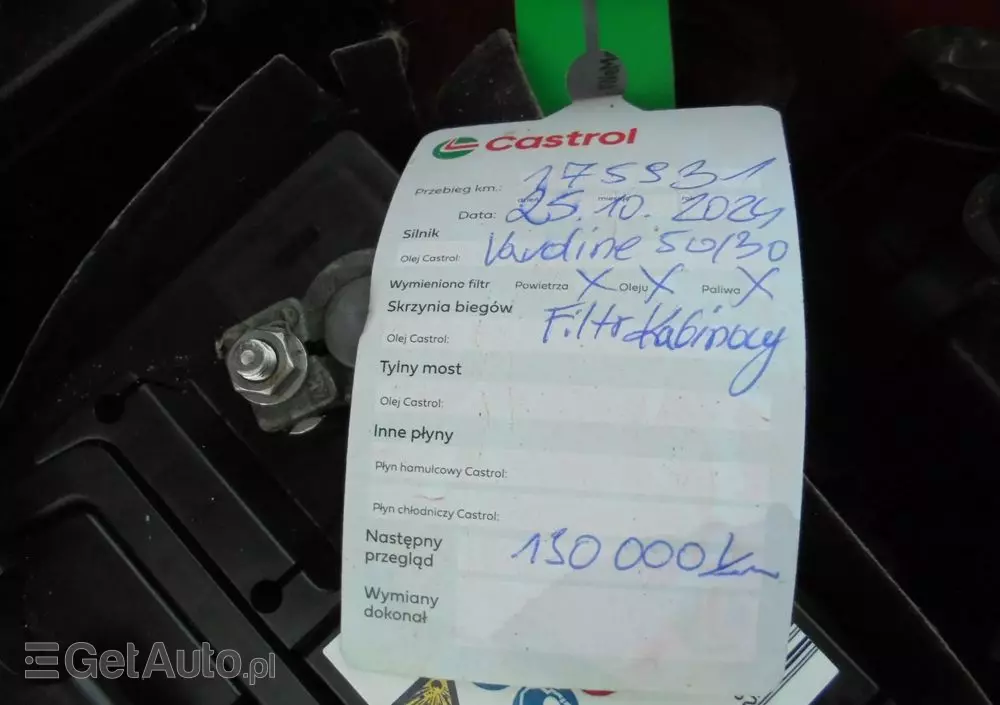 Castrol
Przebieg km.: 175931
dzień miesiąc rok
Data: 25.10.2024
Silnik
Olej Castrol: Vavoline 50/30
Wymieniono filtr Powietrza X Oleju X Paliwa X
Skrzynia biegów Filtr Kabinowy
Olej Castrol:
Tylny most
Olej Castrol:
Inne płyny
Płyn hamulcowy Castrol:
Płyn chłodniczy Castrol:
Następny
przegląd 190 000 km
Wymiany
dokonał
GetAuto.pl